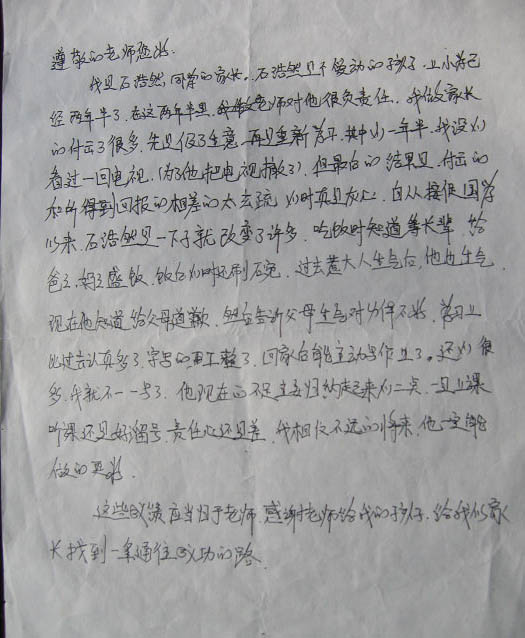 尊敬的老师您好.
我是石浩然同学的家长. 石浩然是个好动的孩子. 上小学已
经两年半了. 在这两年半里. 老师对他很负责任. 我做家长
的付出了很多. 先是停了生意. 再是重新学习. 其中有一年半. 我没有
看过一回电视. (为了他把电视搬了). 但最后的结果是. 付出的
和所得到回报的相差的太玄疏 有时真是灰心. 自从接促国学
以来. 石浩然是一下子就改变了许多. 吃饭时知道等长辈. 给
爸爸. 妈妈盛饭. 饭后有时还刷石宛. 过去惹大人生气后, 他也生气
现在他知道给父母道歉. 然后告诉父母生气对身体不好. 学习上
比过去认真多了. 字写的更工整了. 回家后能主动写作业了。还有很
多. 我就不一一写了. 他现在的不足主要归纳起来有二点. 一是上课
听课还是好溜号. 责任心还是差. 我相信不远的将来. 他一定能
做的更好.
这些成绩应当归于老师. 感谢老师给我的孩子. 给我们家
长找到一条通往成功的路.